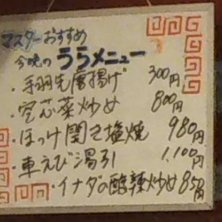 マスターおすすめ
今晩のうらメニュー
・手羽先唐揚げ 300円
・空芯菜炒め 800円
・ほっけ開き塩焼 980円
・車えび湯引 1,100円
・イナダの酸辣炒め 850円